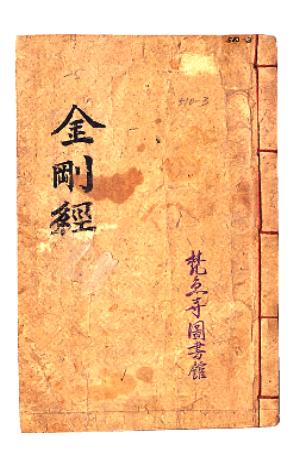 金剛經
510-3
510-3
梵魚寺圖書館